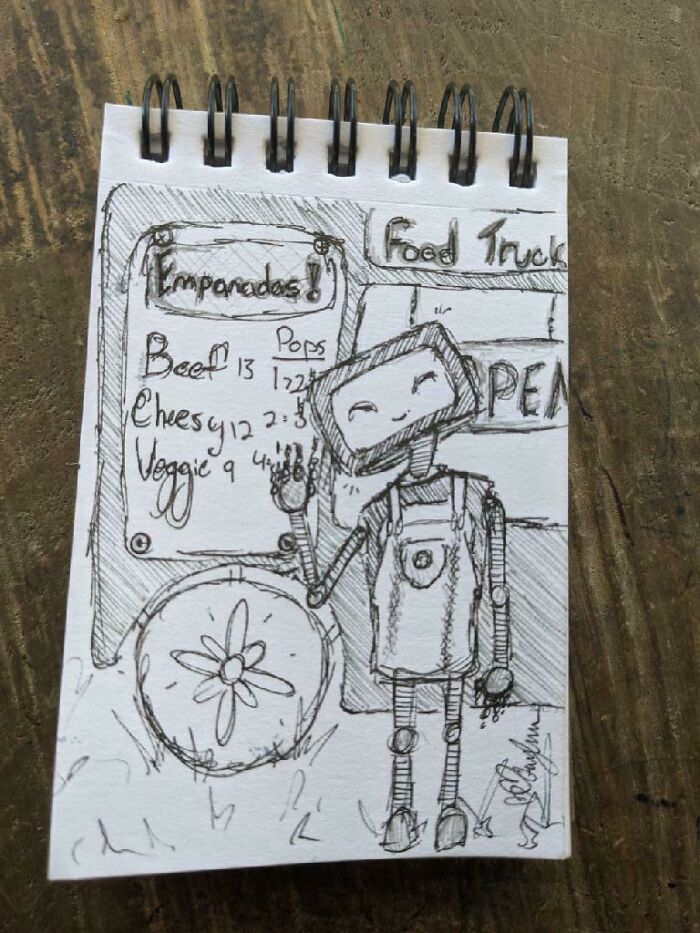 Food Truck
Empanadas!
Pops
Beef 13
Cheesy 12
Veggie 9
OPEN